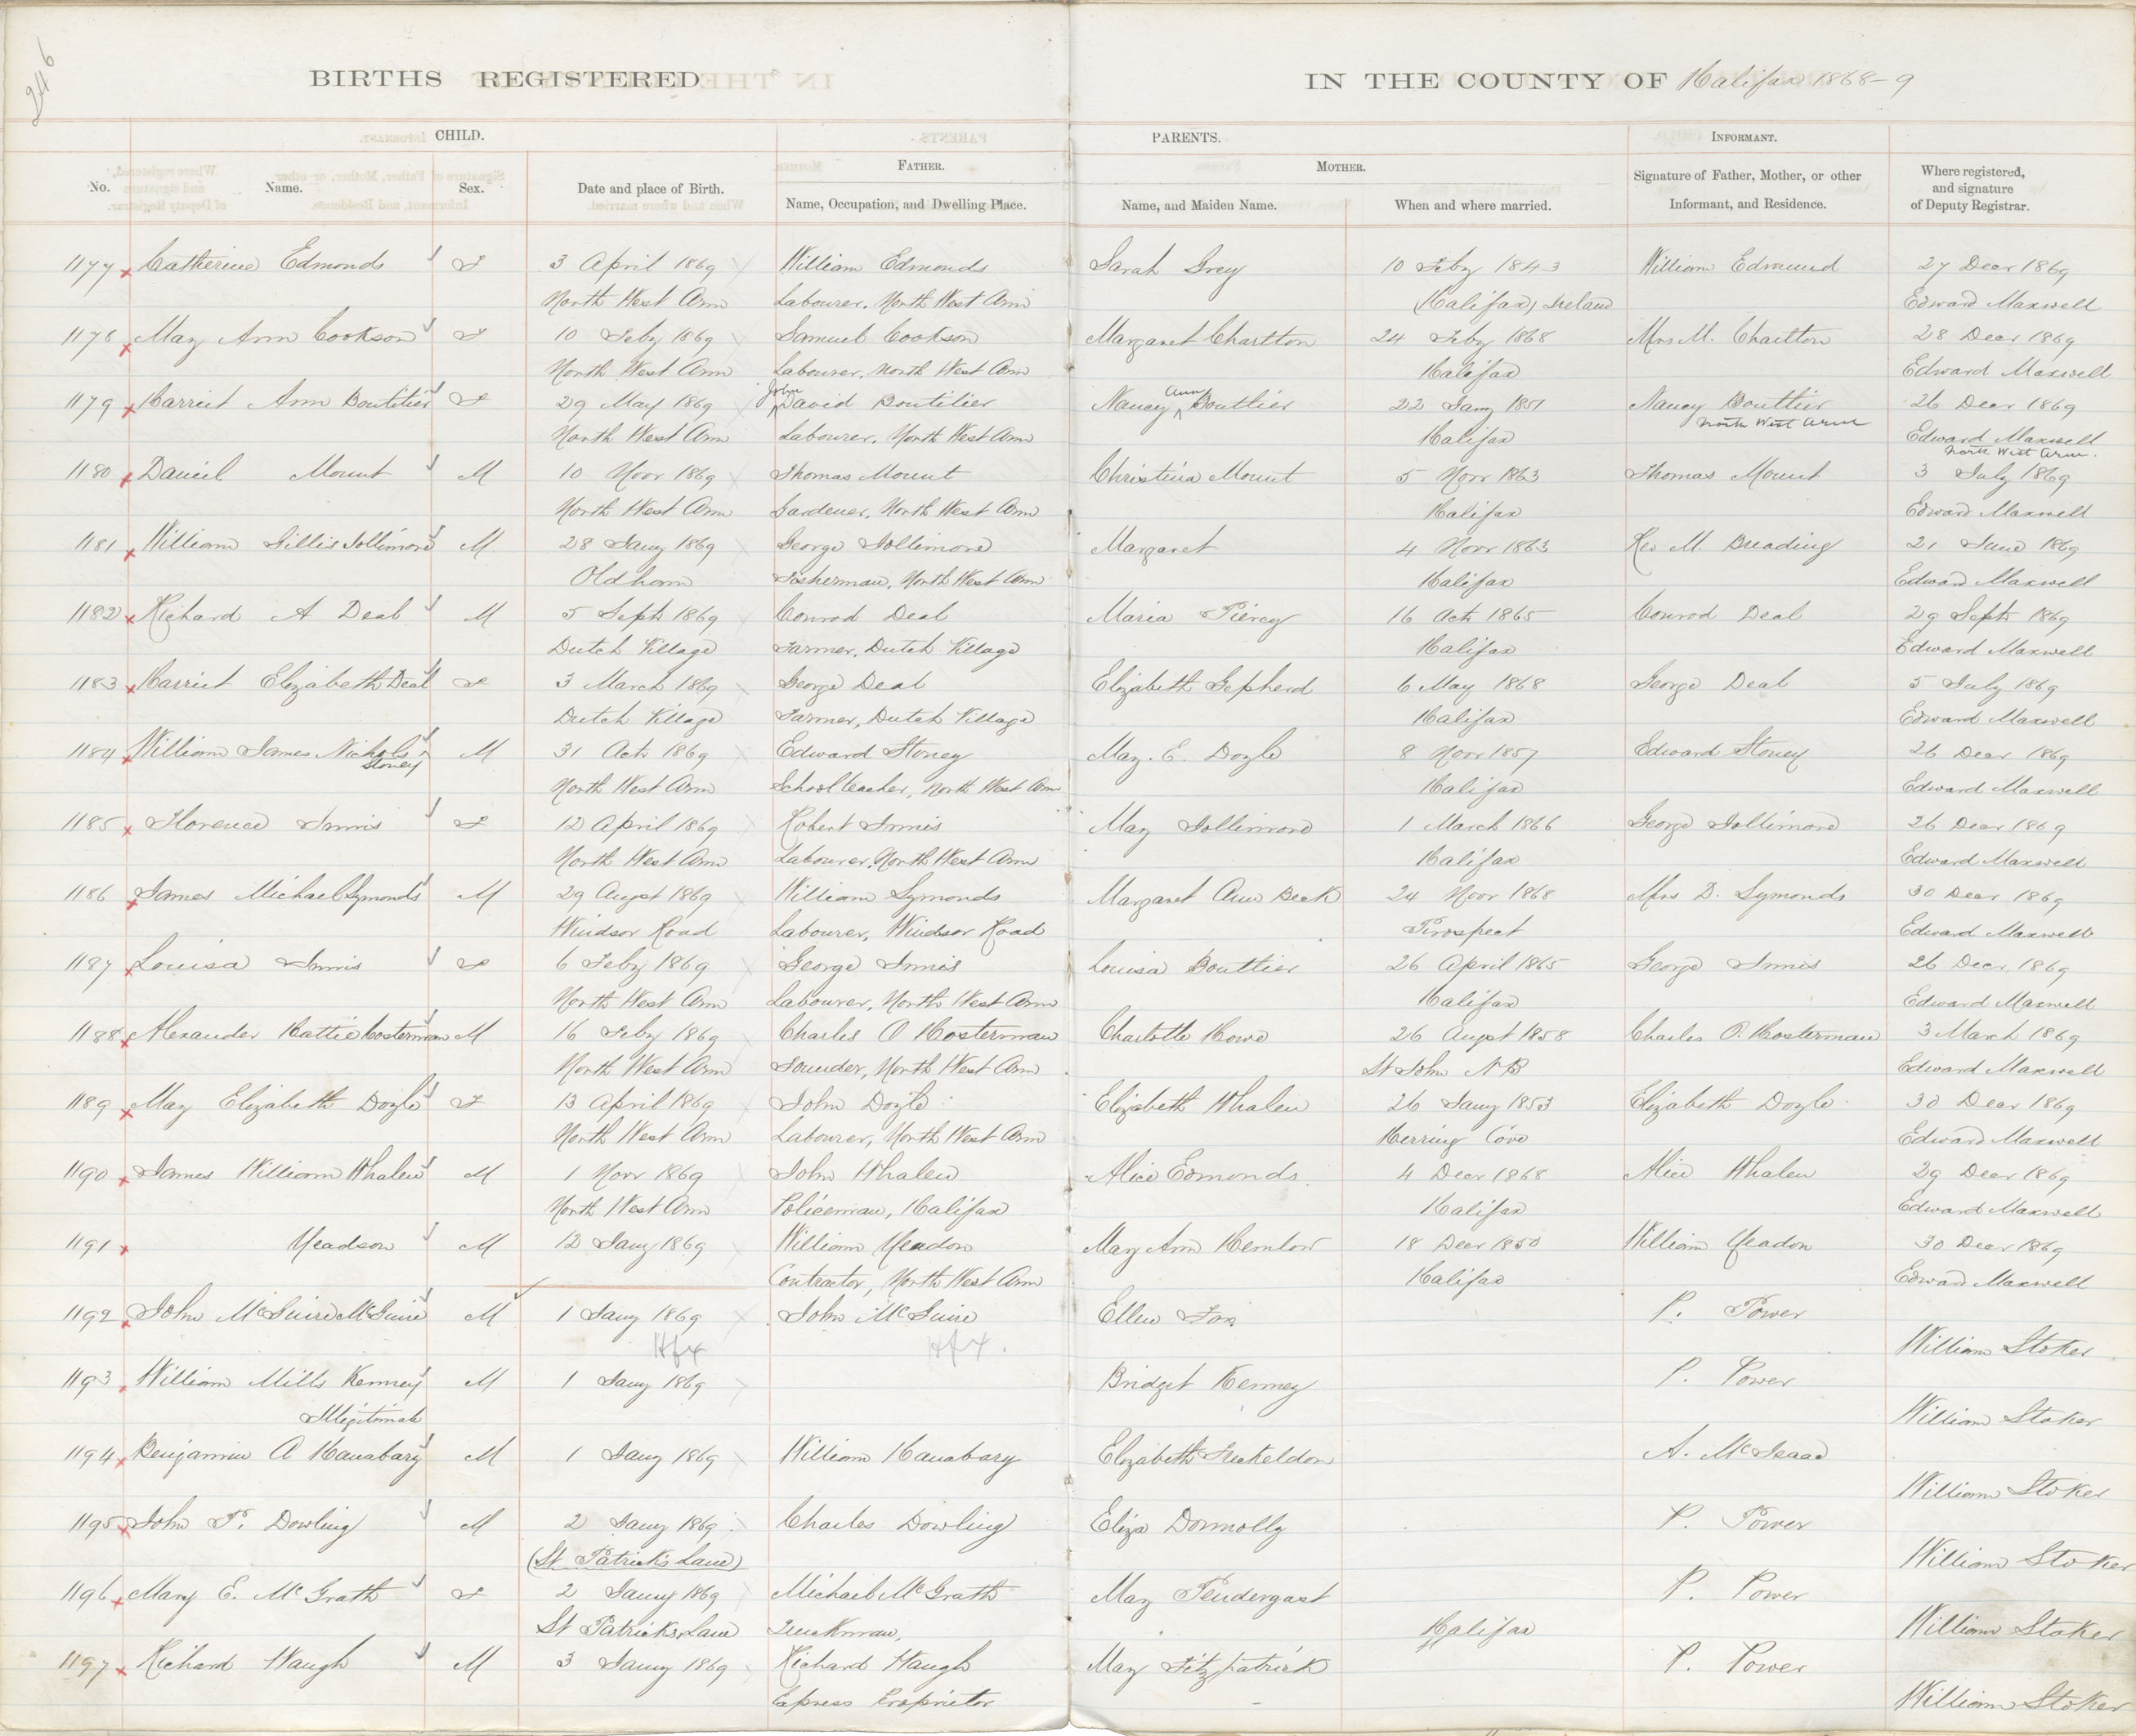 246
BIRTHS REGISTERED IN THE COUNTY OF Halifax 1868-9
CHILD. PARENTS. INFORMANT.
FATHER. MOTHER.
No. Name. Sex. Date and place of Birth. Name, Occupation, and Dwelling Place. Name, and Maiden Name. When and where married. Signature of Father, Mother, or other Informant, and Residence. Where registered, and signature of Deputy Registrar.
1177 Catherine Edmonds F 3 April 1869 William Edmonds Sarah Grey 10 Feby 1843 William Edmund 27 Decr 1869
North West Arm Labourer, North West Arm (Halifax) Ireland Edward Maxwell
1178 May Ann Cookson F 10 Feby 1869 Samuel Cookson Margaret Charlton 24 Feby 1868 Mrs M. Charlton 28 Decr 1869
North West Arm Labourer, North West Arm Halifax Edward Maxwell
1179 Harriet Ann Boutilier F 29 May 1869 John David Boutilier Nancy Ann Bouttier 22 Jany 1851 Nancy Bouttier 26 Decr 1869
North West Arm Labourer, North West Arm Halifax North West Arm Edward Maxwell
North West Arm.
1180 Daniel Mount M 10 Novr 1869 Thomas Mount Christina Mount 5 Novr 1863 Thomas Mount 3 July 1869
North West Arm Gardener, North West Arm Halifax Edward Maxwell
1181 William Gillis Jollimore M 28 Jany 1869 George Jollimore Margaret 4 Novr 1863 Rev M. Breading 21 June 1869
Oldham Fisherman, North West Arm Halifax Edward Maxwell
1182 Richard A Deal M 5 Sept 1869 Conrod Deal Maria Piercy 16 Octr 1865 Conrod Deal 29 Septr 1869
Dutch Village Farmer, Dutch Village Halifax Edward Maxwell
1183 Harriet Elizabeth Deal F 3 March 1869 George Deal Elizabeth Gepherd 6 May 1868 George Deal 5 July 1869
Dutch Village Farmer, Dutch Village Halifax Edward Maxwell
1184 William James Nichols Stoney M 31 Octr 1869 Edward Stoney May. E. Doyle 8 Novr 1857 Edward Stoney 26 Decr 1869
North West Arm School teacher, North West Arm Halifax Edward Maxwell
1185 Florence Innis F 12 April 1869 Robert Innis May Jollimore 1 March 1866 George Jollimore 26 Decr 1869
North West Arm Labourer, North West Arm Halifax Edward Maxwell
1186 James Michael Symonds M 29 Augst 1869 William Symonds Margaret Ann Beck 24 Novr 1868 Mrs D. Symonds 30 Decr 1869
Windsor Road Labourer, Windsor Road Prospect Edward Maxwell
1187 Louisa Innis F 6 Feby 1869 George Innis Louisa Bouttier 26 April 1865 George Innis 26 Decr 1869
North West Arm Labourer, North West Arm Halifax Edward Maxwell
1188 Alexander Hattie Hosterman M 16 Feby 1869 Charles O Hosterman Charlotte Howe 26 Augst 1858 Charles O. Hosterman 3 March 1869
North West Arm Founder, North West Arm St John NB Edward Maxwell
1189 May Elizabeth Doyle F 13 April 1869 John Doyle Elizabeth Whalen 26 Jany 1853 Elizabeth Doyle 30 Decr 1869
North West Arm Labourer, North West Arm Herring Cove Edward Maxwell
1190 James William Whalen M 1 Novr 1869 John Whalen Alice Edmonds 4 Decr 1868 Alice Whalen 29 Decr 1869
North West Arm Policeman, Halifax Halifax Edward Maxwell
1191 Yeadson M 12 Jany 1869 William Yeadon May Ann Hemlow 18 Decr 1850 William Yeadon 30 Decr 1869
Contractor, North West Arm Halifax Edward Maxwell
1192 John McGuire McGuire M 1 Jany 1869 John McGuire Ellen Fox P. Power
Hfx Hfx. William Stoker
1193 William Mills Kenney M 1 Jany 1869 Bridget Kenney P. Power
Illigitimate William Stoker
1194 Benjamin A Hanabary M 1 Jany 1869 William Hanabary Elizabeth A. McIsaac
William Stoker
1195 John P. Dowling M 2 Jany 1869 Charles Dowling Eliza Donnolly P. Power
(St Patricks Lane) William Stoker
1196 Mary E. McGrath F 2 Jany 1869 Michael McGrath May Pendergast P. Power
St Patricks Lane Truckman, Halifax William Stoker
1197 Richard Waugh M 3 Jany 1869 Richard Waugh May Fitzpatrick P. Power
Express Proprietor William Stoker